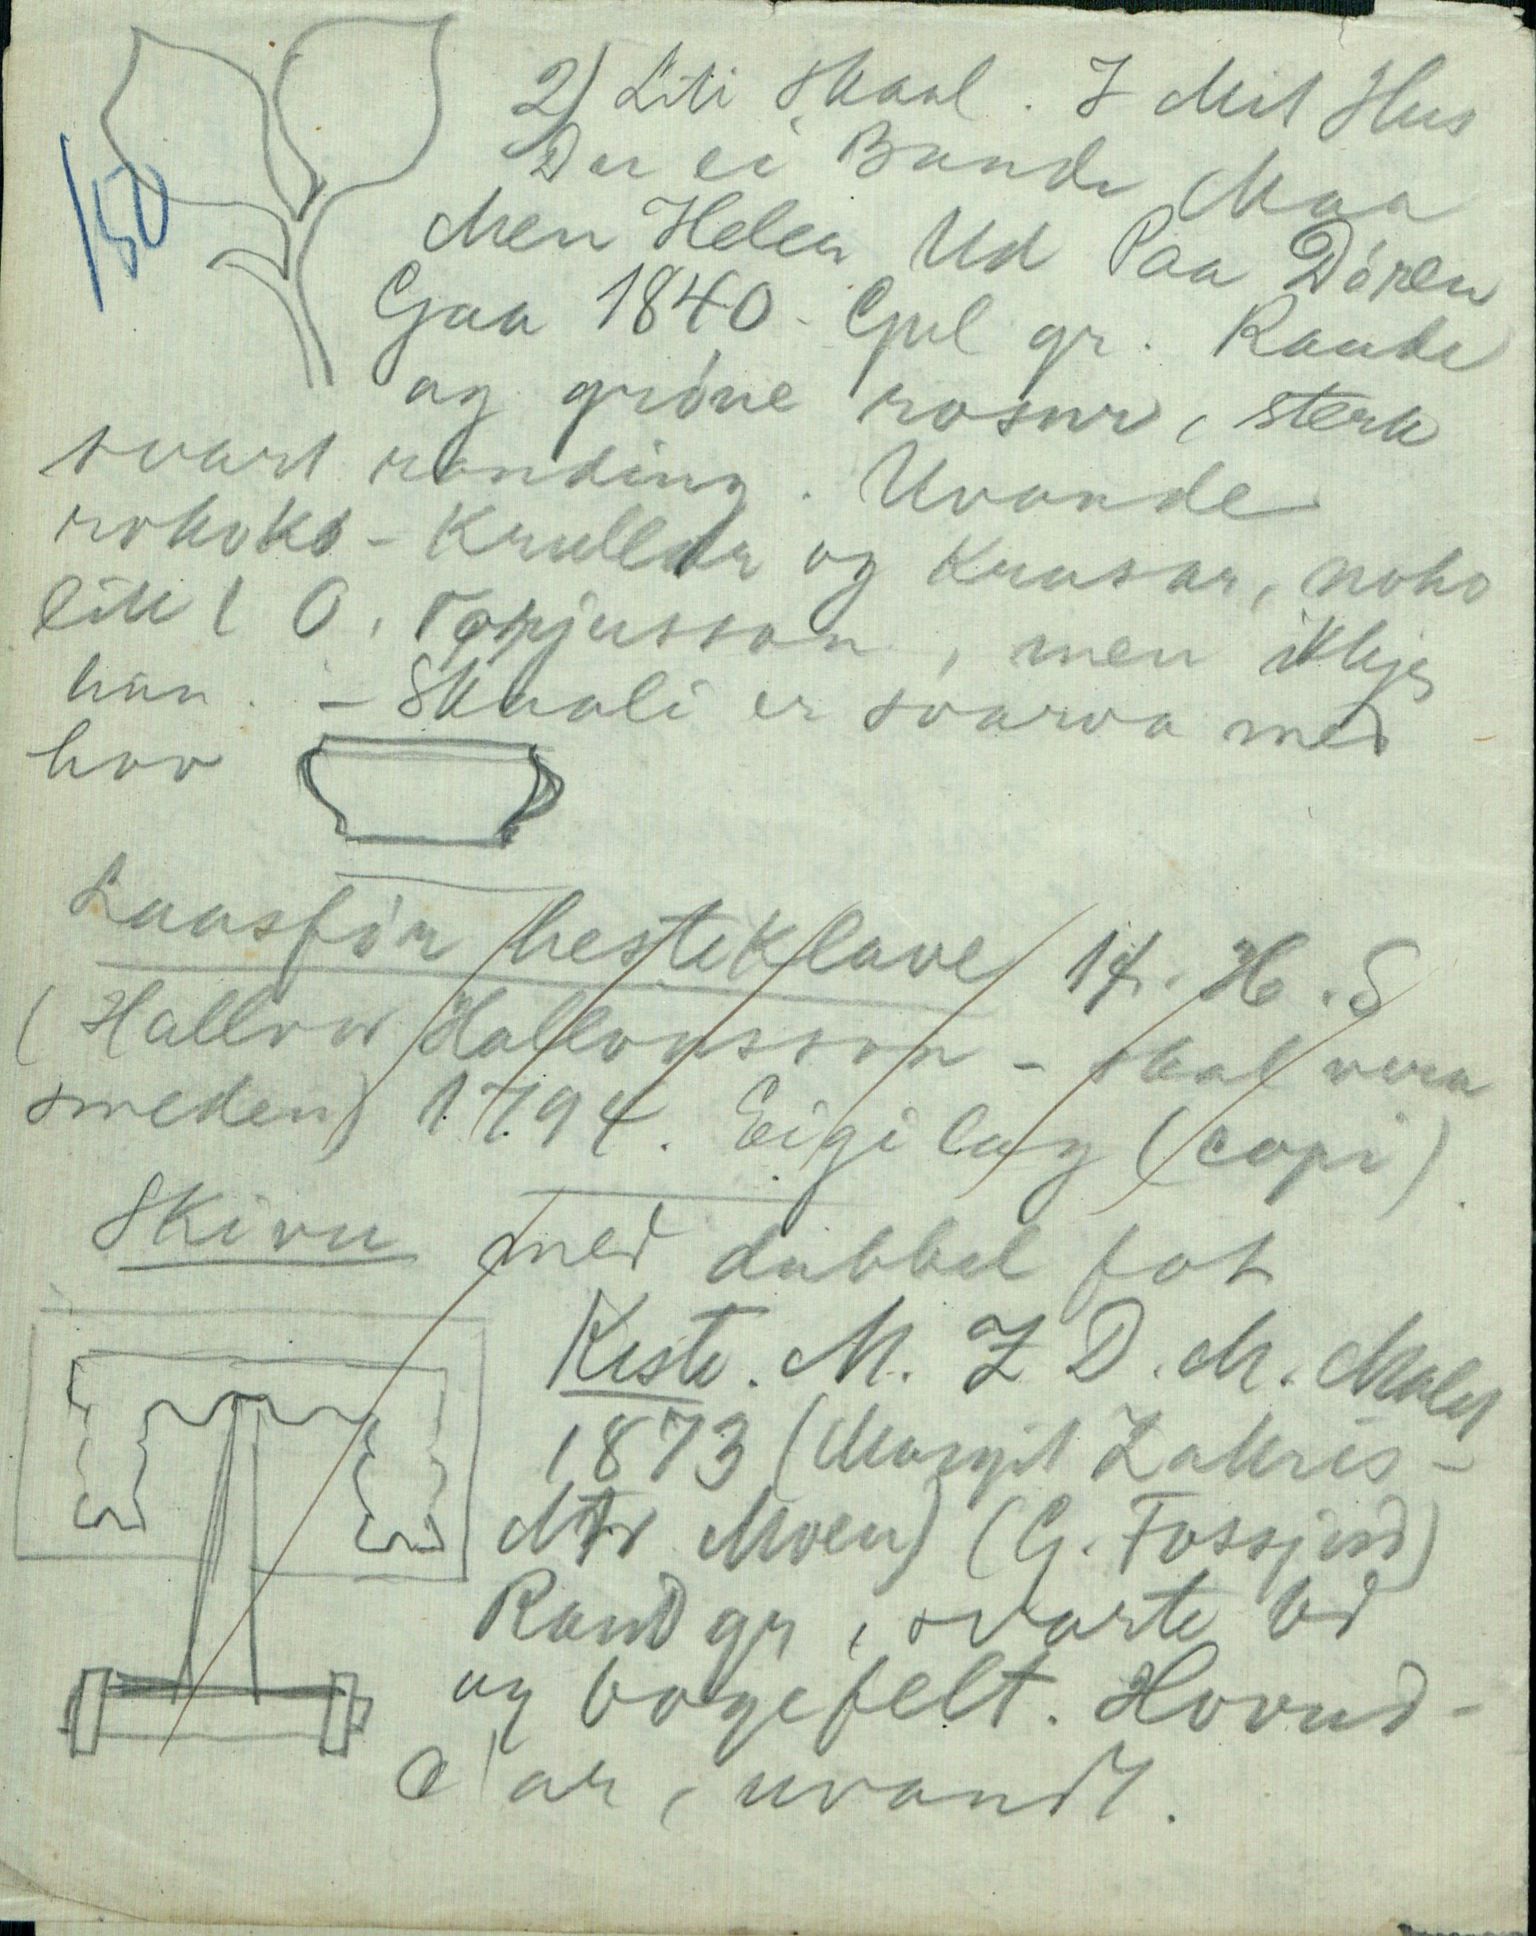 2) Liti skaal. I Mit Hus
Du ei Bande Maa
Men Heler Ud Paa Dören
Gaa 1840. Gul gr. Raude
og gröne rosur, sterk
svart randing. Uvande
rokoko-krullar og krusar, noko
likt O. Torjusson, men ikkje
han. - Skaali er svarva med
hov
150
Laasför hesteklave 14. H. S
(Hallvor Hallvorsson - skal vera
smeden) 1794. Eigi lag (copi)
Skivu med dubbel fot
Kiste. M. Z D. M. Malet
1873 (Margit Zakris-
dtr Moen) (G. Fossjord)
Raud gr, svarte bd
og bogefelt. Hovud-
c'ar, uvandt.